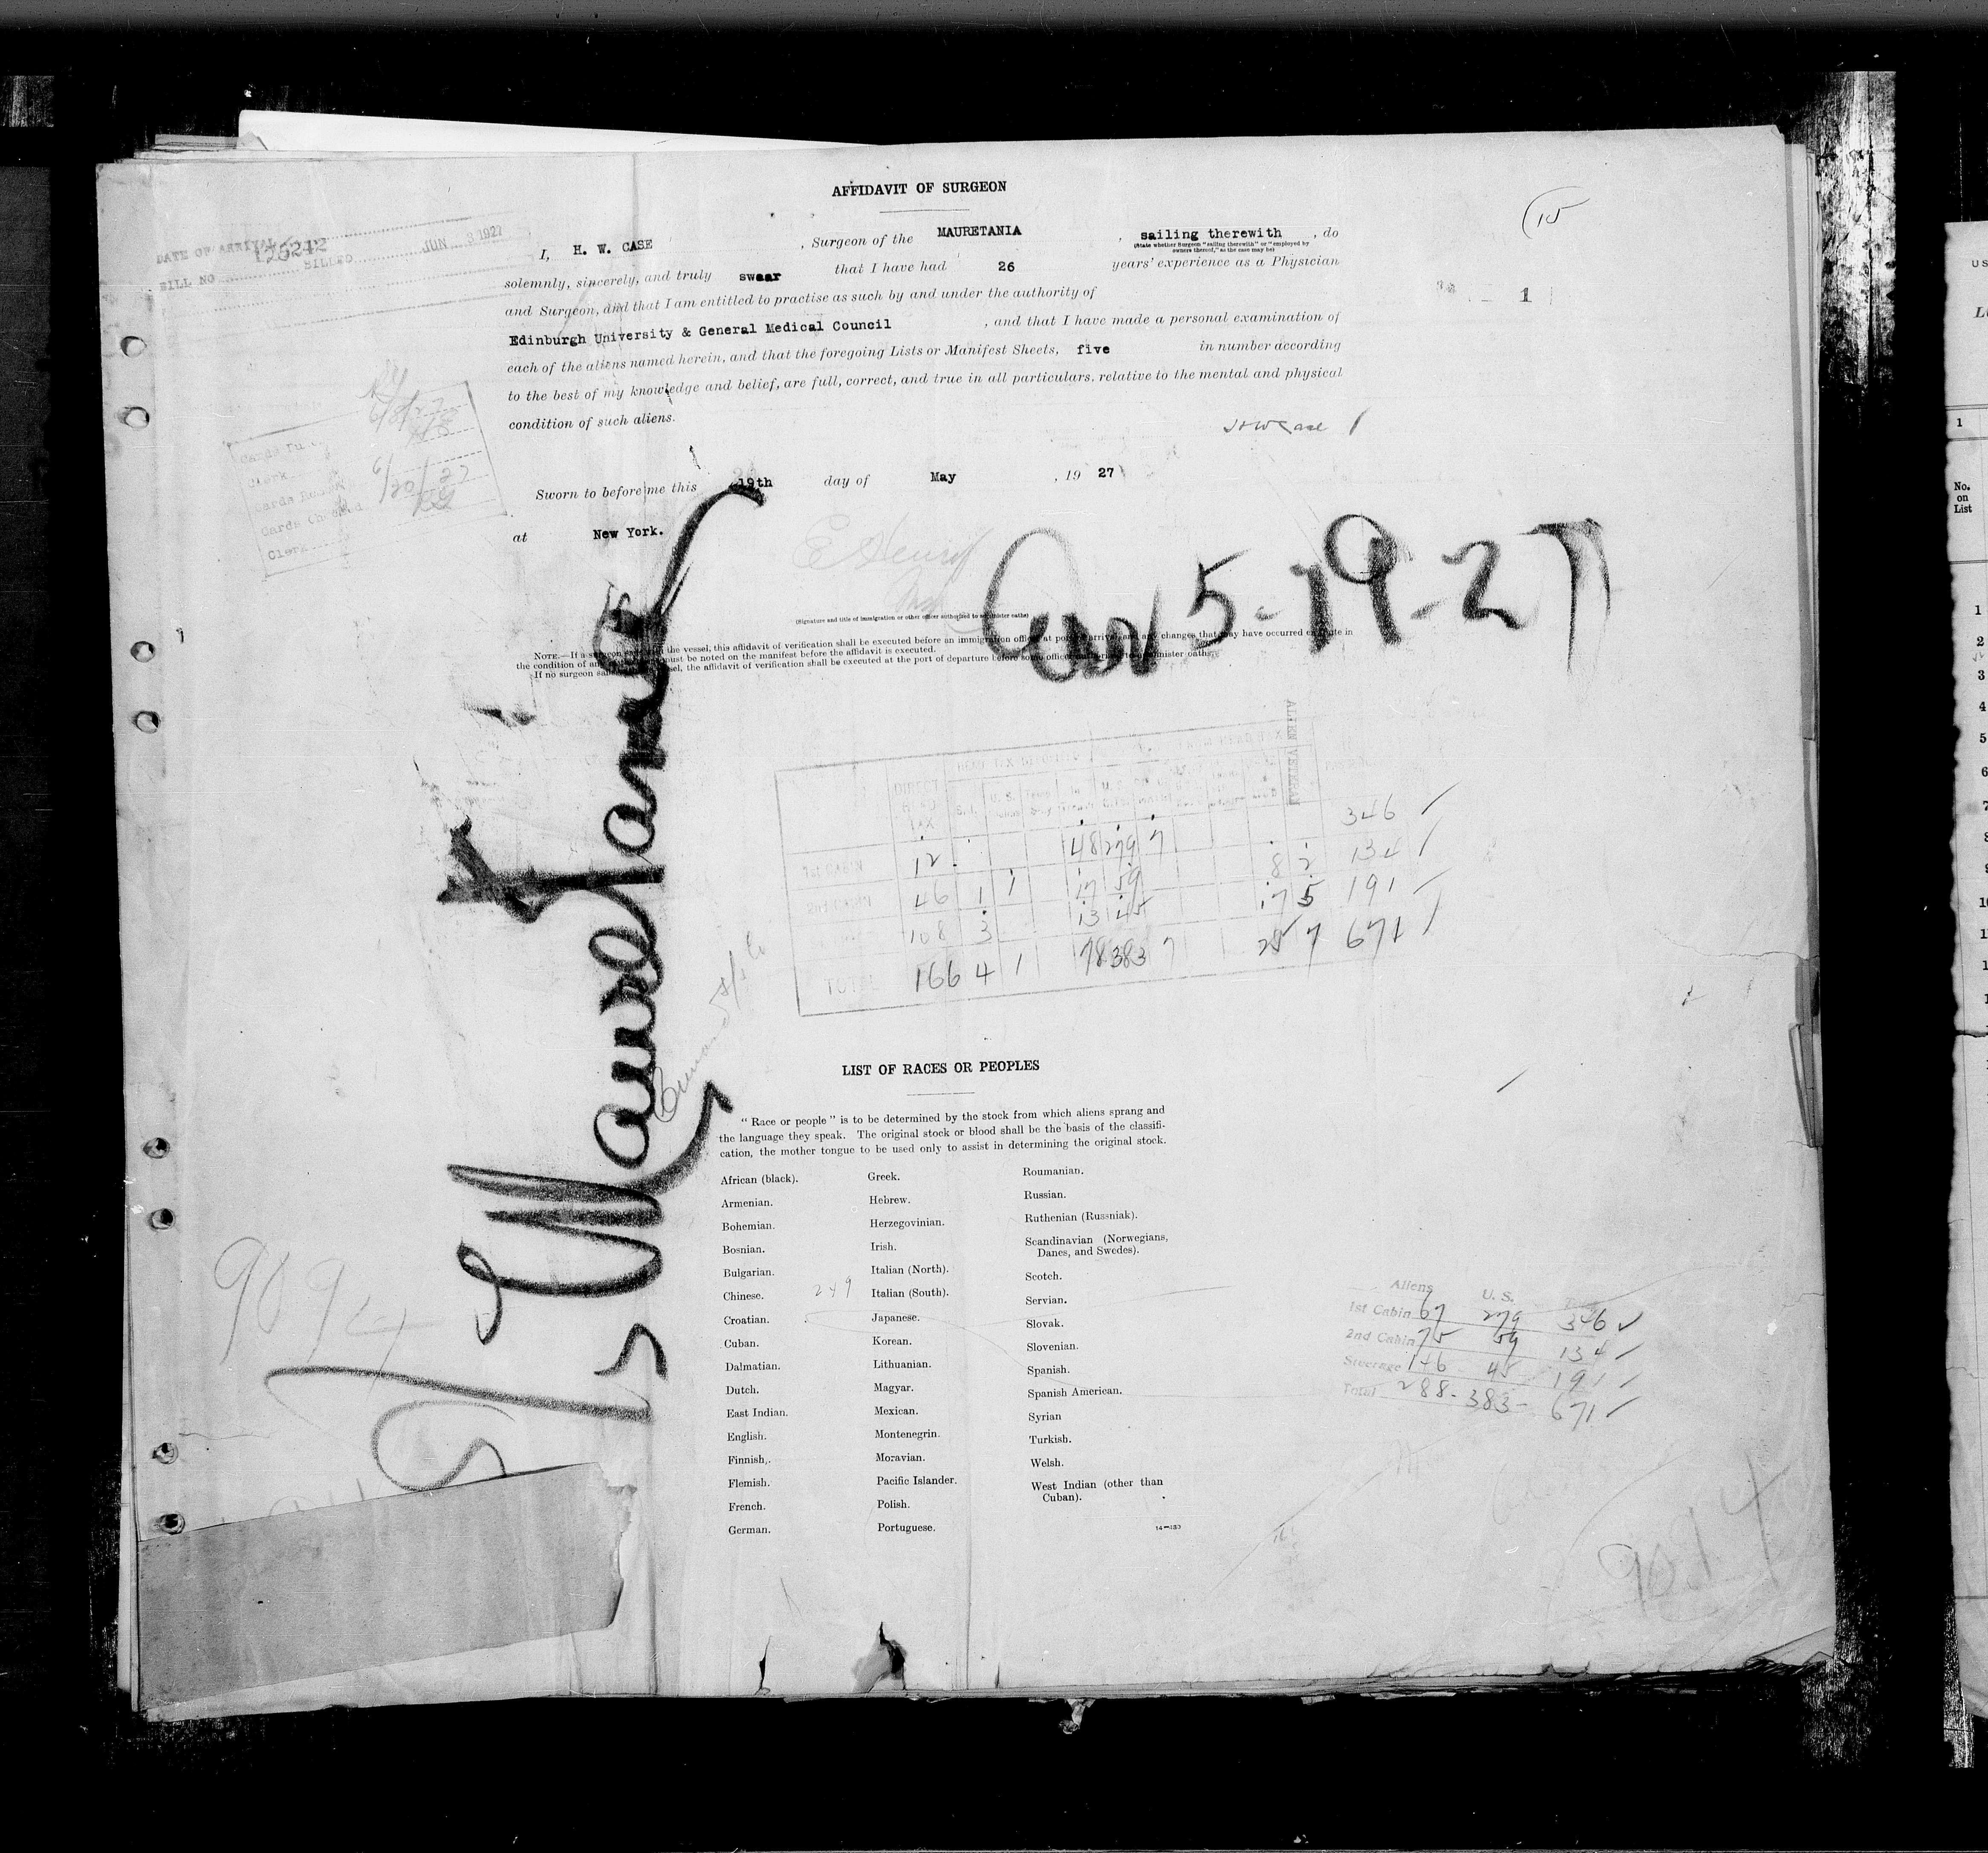 AFFIDAVIT OF SURGEON
15
DATE OF ARRIVAL
BILL NO 125242 BILLED JUN 3 1927
I, H. W. CASE, Surgeon of the MAURETANIA, sailing therewith, do
(State whether Surgeon "sailing therewith" or "employed by
owners thereof," as the case may be)
solemnly, sincerely, and truly swear that I have had 26 years' experience as a Physician
and Surgeon, and that I am entitled to practise as such by and under the authority of
1
Edinburgh University & General Medical Council, and that I have made a personal examination of
each of the aliens named herein, and that the foregoing Lists or Manifest Sheets, five in number according
to the best of my knowledge and belief, are full, correct, and true in all particulars, relative to the mental and physical
condition of such aliens.
HWCase
Clerk
Cards Checked 6/20/27
Clerk
Sworn to before me this 19th day of May, 1927
at New York.
E Henry
Arr 5-19-27
(Signature and title of immigration or other officer authorized to administer oaths)
NOTE.—If a surgeon the vessel, this affidavit of verification shall be executed before an immigration officer at port arrival and any changes that may have occurred en route in
the condition of any must be noted on the manifest before the affidavit is executed.
If no surgeon vessel, the affidavit of verification shall be executed at the port of departure before some officer to administer oaths.
S/S Mauretania
Cunard S/S Co
ALIEN VETERAN
DIRECT HEAD TAX
1st CABIN 12 48 279 7 346
2nd CABIN 46 1 1 17 59 8 2 134
108 3 13 45 17 5 191
TOTAL 166 4 1 78 383 7 25 7 671
LIST OF RACES OR PEOPLES
"Race or people" is to be determined by the stock from which aliens sprang and
the language they speak. The original stock or blood shall be the basis of the classifi-
cation, the mother tongue to be used only to assist in determining the original stock.
African (black).
Armenian.
Bohemian.
Bosnian.
Bulgarian.
Chinese. 249
Croatian.
Cuban.
Dalmatian.
Dutch.
East Indian.
English.
Finnish.
Flemish.
French.
German.
Greek.
Hebrew.
Herzegovinian.
Irish.
Italian (North).
Italian (South).
Japanese.
Korean.
Lithuanian.
Magyar.
Mexican.
Montenegrin.
Moravian.
Pacific Islander.
Polish.
Portuguese.
Roumanian.
Russian.
Ruthenian (Russniak).
Scandinavian (Norwegians,
Danes, and Swedes).
Scotch.
Servian.
Slovak.
Slovenian.
Spanish.
Spanish American.
Syrian
Turkish.
Welsh.
West Indian (other than
Cuban).
Aliens U. S. Total
1st Cabin 67 279 346
2nd Cabin 75 59 134
Steerage 146 45 191
Total 288-383-671
No.
on
List
1
2
3
4
5
6
7
8
9